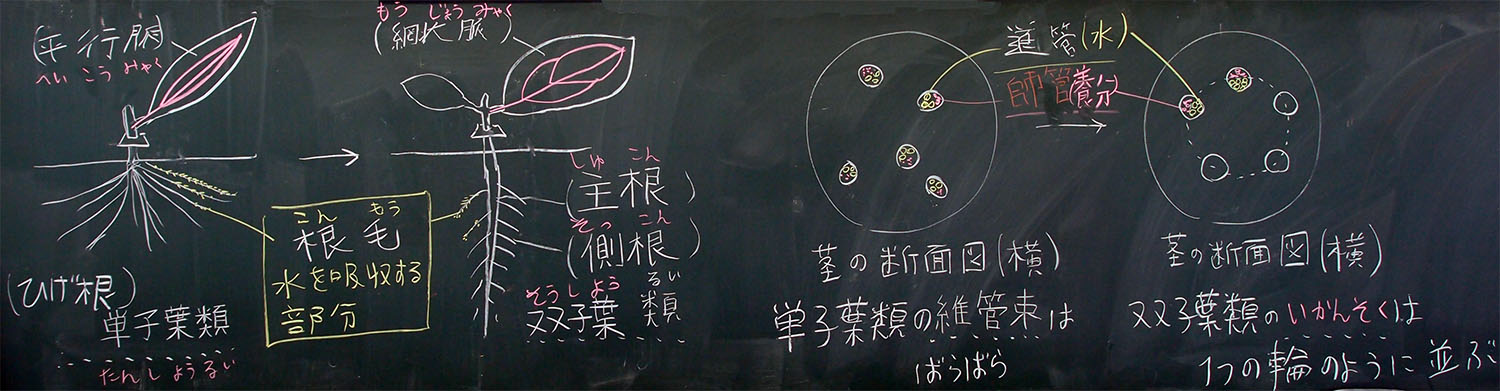 (平行脈)
へいこうみゃく
もうじょうみゃく
(網状脈)
こんもう
根毛
水を吸収する
部分
(ひげ根)
単子葉類
たんしようるい
しゅこん
(主根)
そっこん
(側根)
そうしようるい
双子葉類
道管(水)
師管(養分)
茎の断面図(横)
単子葉類の維管束は
ばらばら
茎の断面図(横)
双子葉類のいかんそくは
1つの輪のように並ぶ